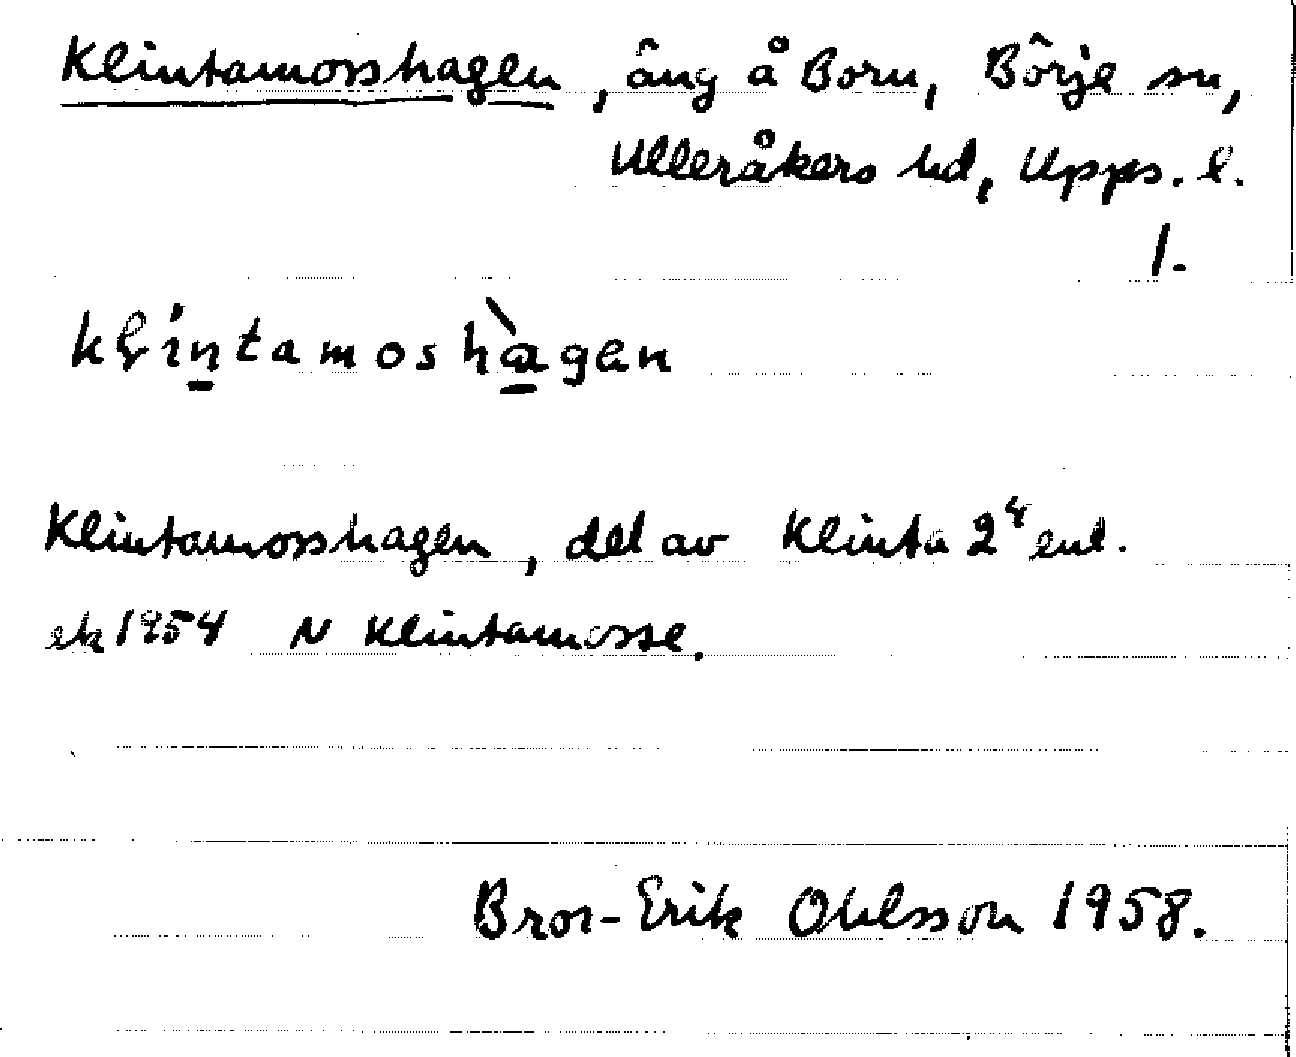 Klintamosshagen, äng å Born, Börje sn,
Ulleråkers hd, Upps. l.
1.
Klintamosshagen, del av Klinta 2⁴ enl.
ek 1954 N Klintamosse.
Bror-Erik Ohlsson 1958.